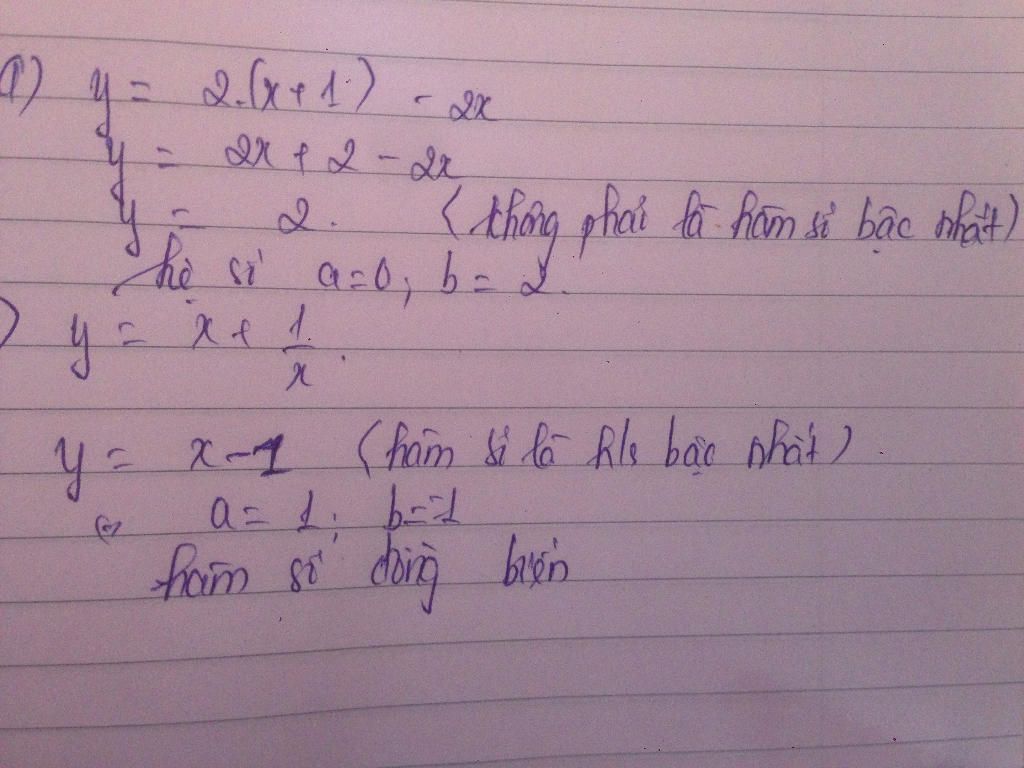 a) y = 2.(x+1) - 2x
y = 2x + 2 - 2x
y = 2. (không phải là hàm số bậc nhất)
hệ số a=0; b = 2.
) y = x + 1/x.
y = x-1 (hàm số là h/s bậc nhất)
⇔ a = 1; b=-1
hàm số đồng biến